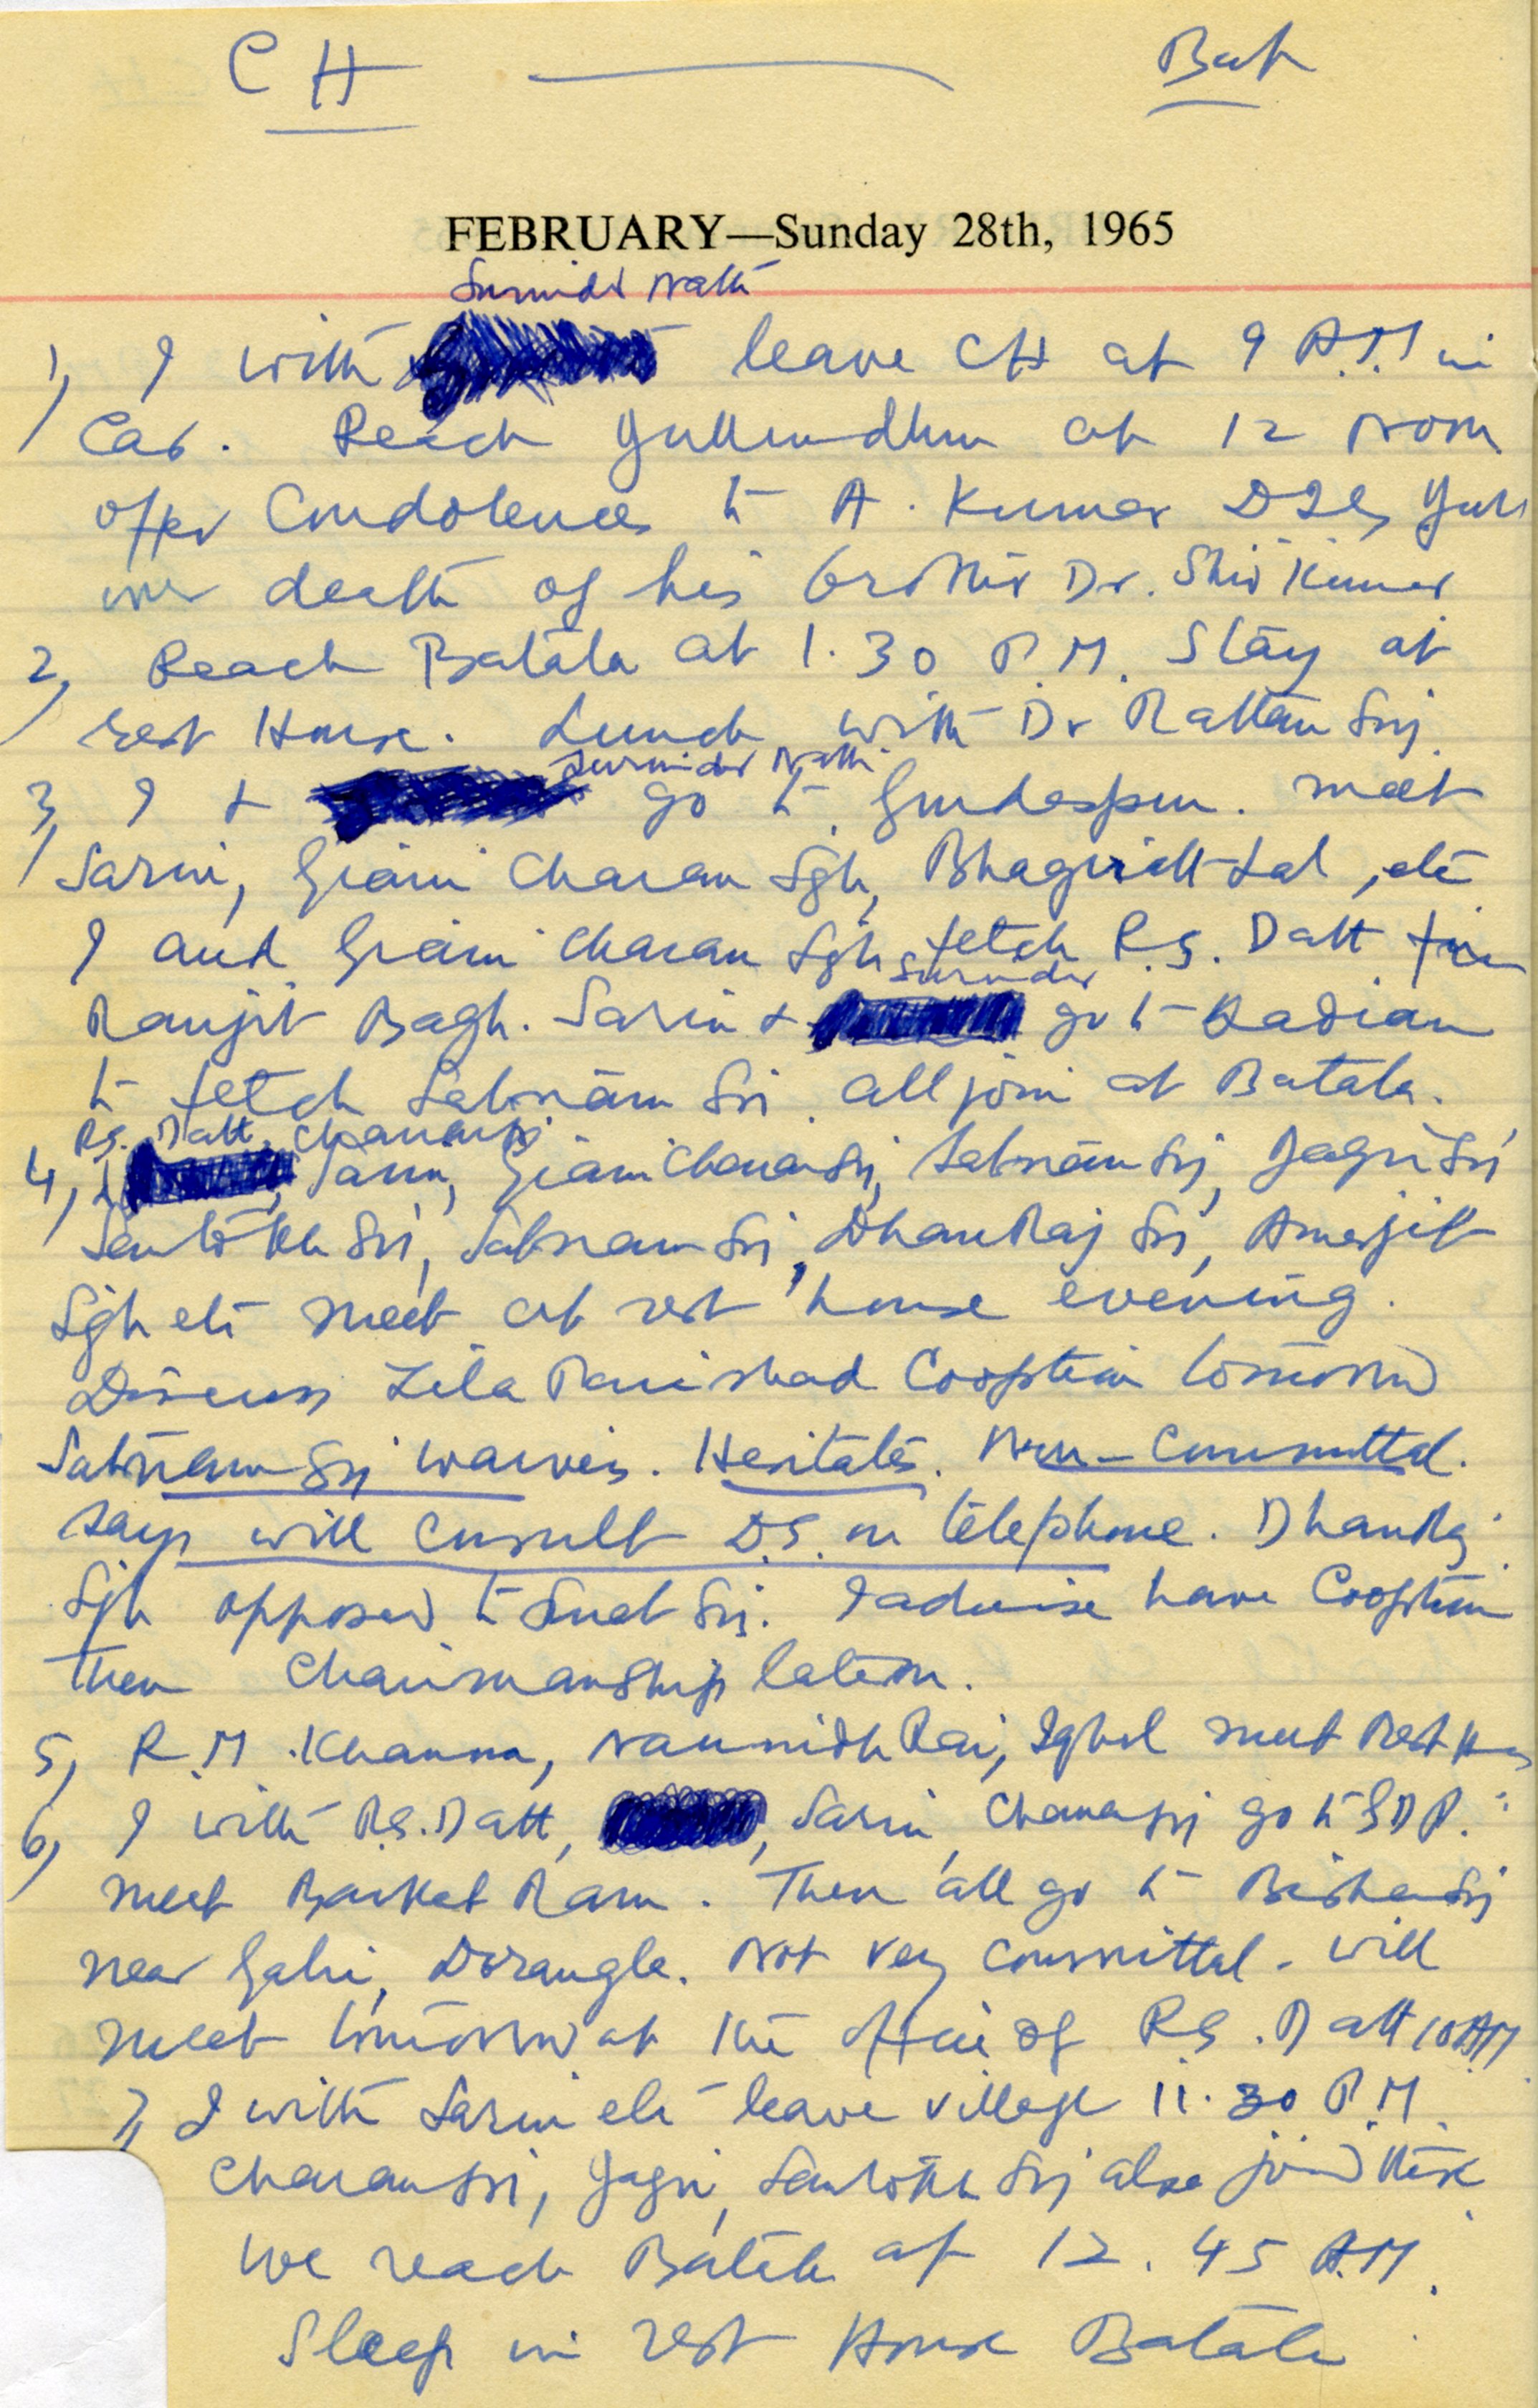 CH — Bat
FEBRUARY—Sunday 28th, 1965
Surinder Nath
1, I with leave CH at 9 A.M in
Car. Reach Jullundhur at 12 Noon
offer Condolences to A. Kumar DIG, Jull
over death of his brother Dr. Shiv Kumar
2, Reach Batala at 1.30 P.M. Stay at
rest House. Lunch with Dr Rattan Sgj.
Surinder Nath
3, I + go to Gurdaspur. meet
Sarin, Giani Charan Sgh, Bhagirath Lal, etc
I and Giani Charan Sgh fetch R.S. Datt from
Surinder
Ranjit Bagh. Sarin + go to Kadian
to fetch Satnam Sgj. all join at Batala.
R.S. Datt, Charansgj
4, I, Sarin, Giani Charan Sgj, Satnam Sgj, Jagir Sgj
Santokh Sgj, Satnam Sgj, Dhanraj Sgj, Amarjit
Sgh etc meet at rest house evening.
Discuss Zila Parishad Cooption tomorrow
Satnam Sgj waives. Hesitates. Non-Committal.
says will consult D.S. on telephone. Dhanraj
Sgh opposed to Sgj. I advise have Cooption
then Chairmanship later on.
5, R.M. Khanna, Naunidh Rai, Iqbal meet Rest House
6, I with R.S. Datt, Sarin, Charansgj go to
meet Barkat Ram. Then all go to Bishansgj
near Gahi, Dorangla. Not very committal. Will
meet tomorrow at the office of R.S. Datt 10 AM
7, I with Sarin etc leave village 11.30 P.M.
Charansgj, Jagir, Santokh Sgj also joined there
We reach Batala at 12.45 A.M.
Sleep in rest House Batala